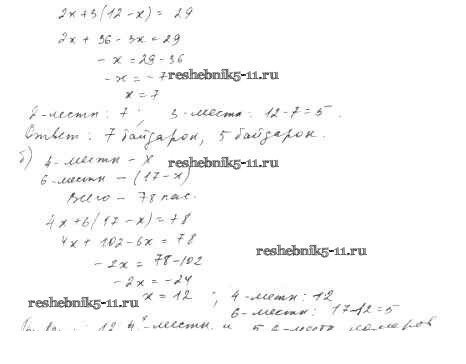 2x+3(12-x)= 29
2x+ 36-3x=29
-x=29-36
-x=-7
reshebnik5-11.ru
x=7
2-местн: 7; 3-местн: 12-7=5.
Ответ: 7 байдарок, 5 байдарок.
б) 4-местн - x
reshebnik5-11.ru
6-местн - (17-x)
Всего - 78 пас.
4x+6(17-x)=78
4x+102-6x=78
reshebnik5-11.ru
-2x=78-102
-2x=-24
reshebnik5-11.ru
x=12; 4-местн: 12
6-местн: 17-12=5
12 4-местн. и 5 6-местн номеров